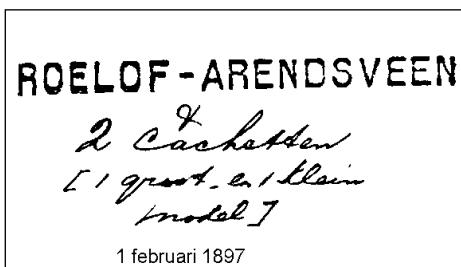 ROELOF-ARENDSVEEN
&
2 cachetten
[1 groot. en 1 klein
model]
1 februari 1897